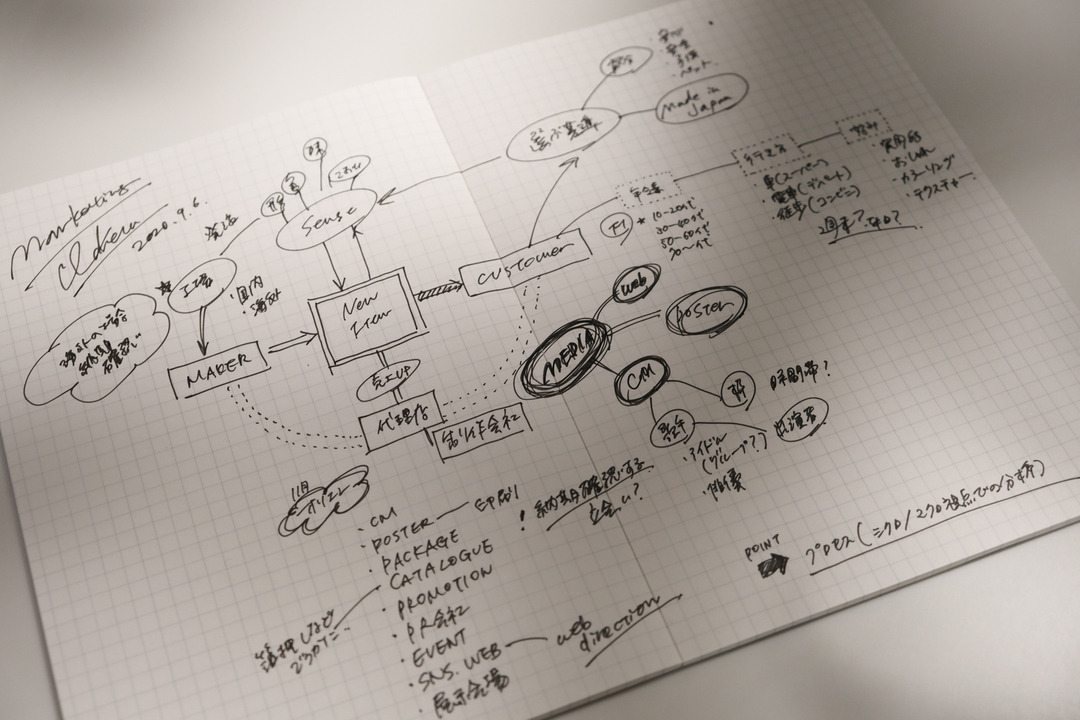 Marketing
2020.9.6.
海外の場合
納期
確認!
工場
・国内
・海外
MAKER
Sense
味
New
Item
売上UP
代理店
制作会社
CUSTOMER
選ぶ基準
Made in
Japan
・ペット
F1
* 10~20代
30~40代
50~60代
70~代
行き方
車(スーパー)
・電車(デパート)
・徒歩(コンビニ)
実用的
・おしゃれ
・カラーリング
・テクスチャー
MEDIA
web
poster
CM
時間帯?
歌手
出演者
・アイドル
(グループ?)
・俳優
11月
オリエン
・CM
・POSTER — 印刷
・PACKAGE
・CATALOGUE
・PROMOTION
・PR会社
・EVENT
・SNS. WEB — web
direction
・展示会場
! 納期確認する
立会い?
POINT
プロセス(ミクロ/マクロ視点での分析)